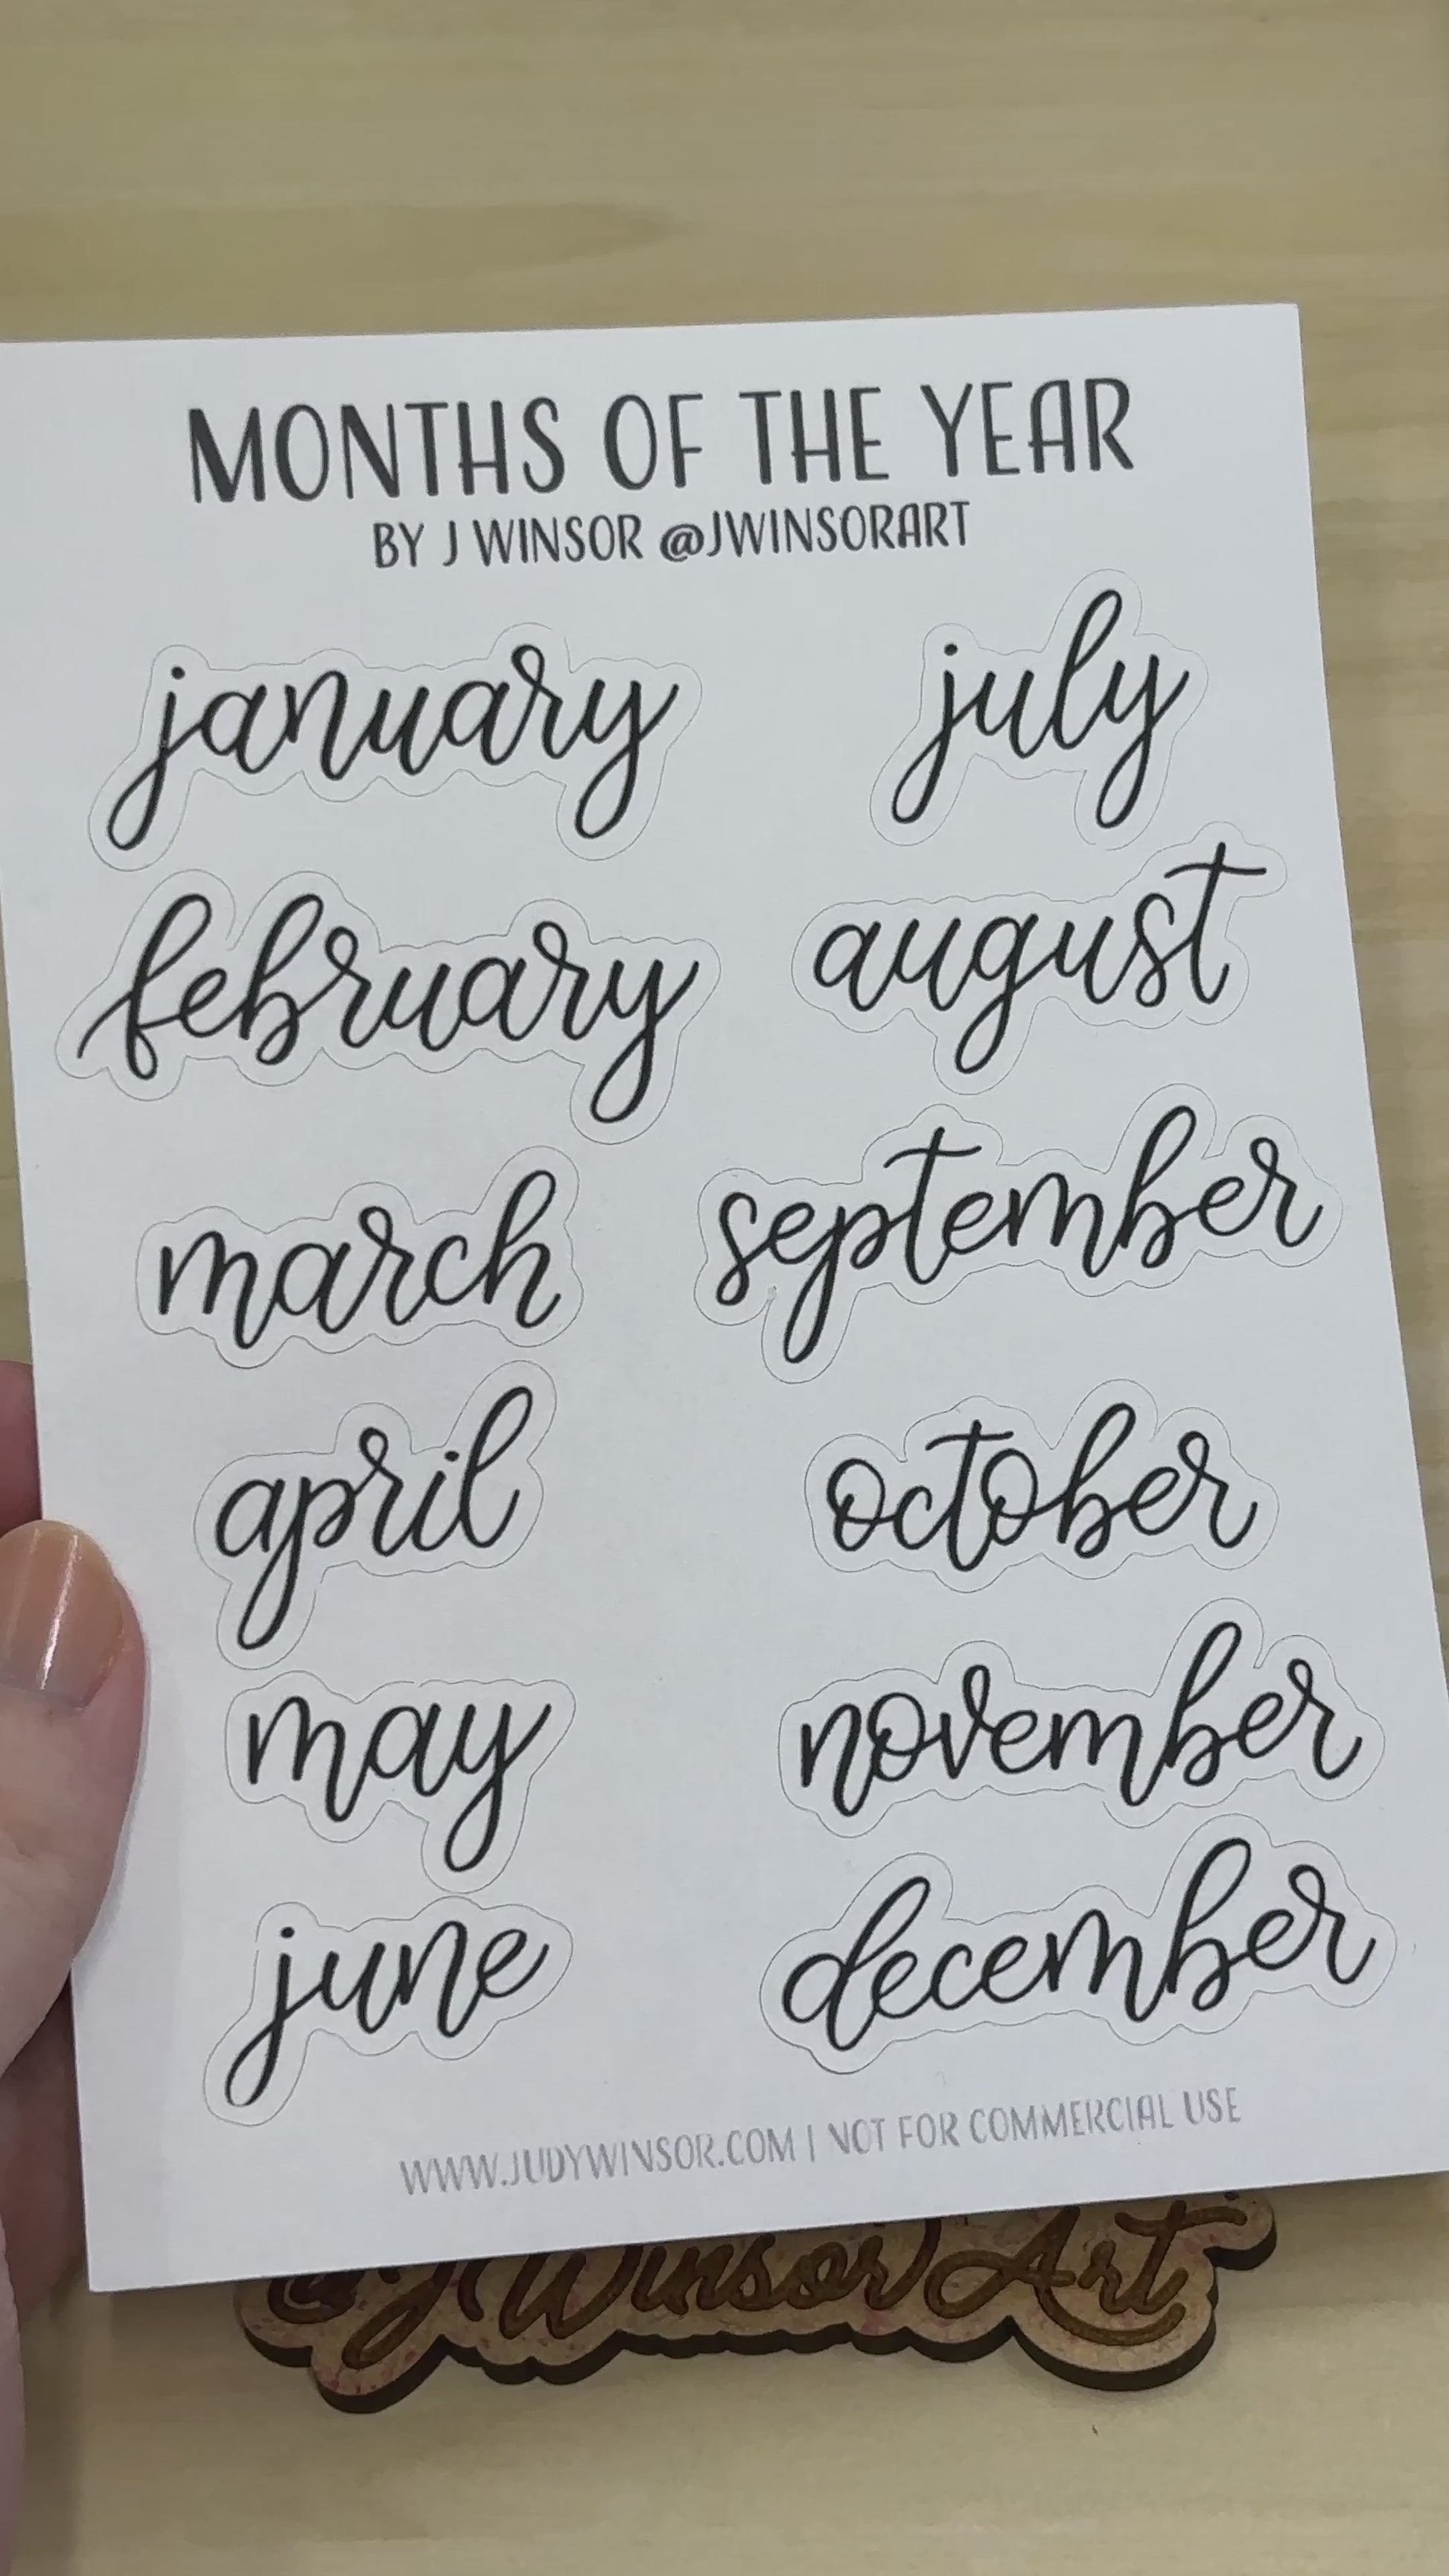 MONTHS OF THE YEAR
BY J WINSOR @JWINSORART
january
february
march
april
may
june
july
august
september
october
november
december
WWW.JUDYWINSOR.COM | NOT FOR COMMERCIAL USE
@JWinsorArt